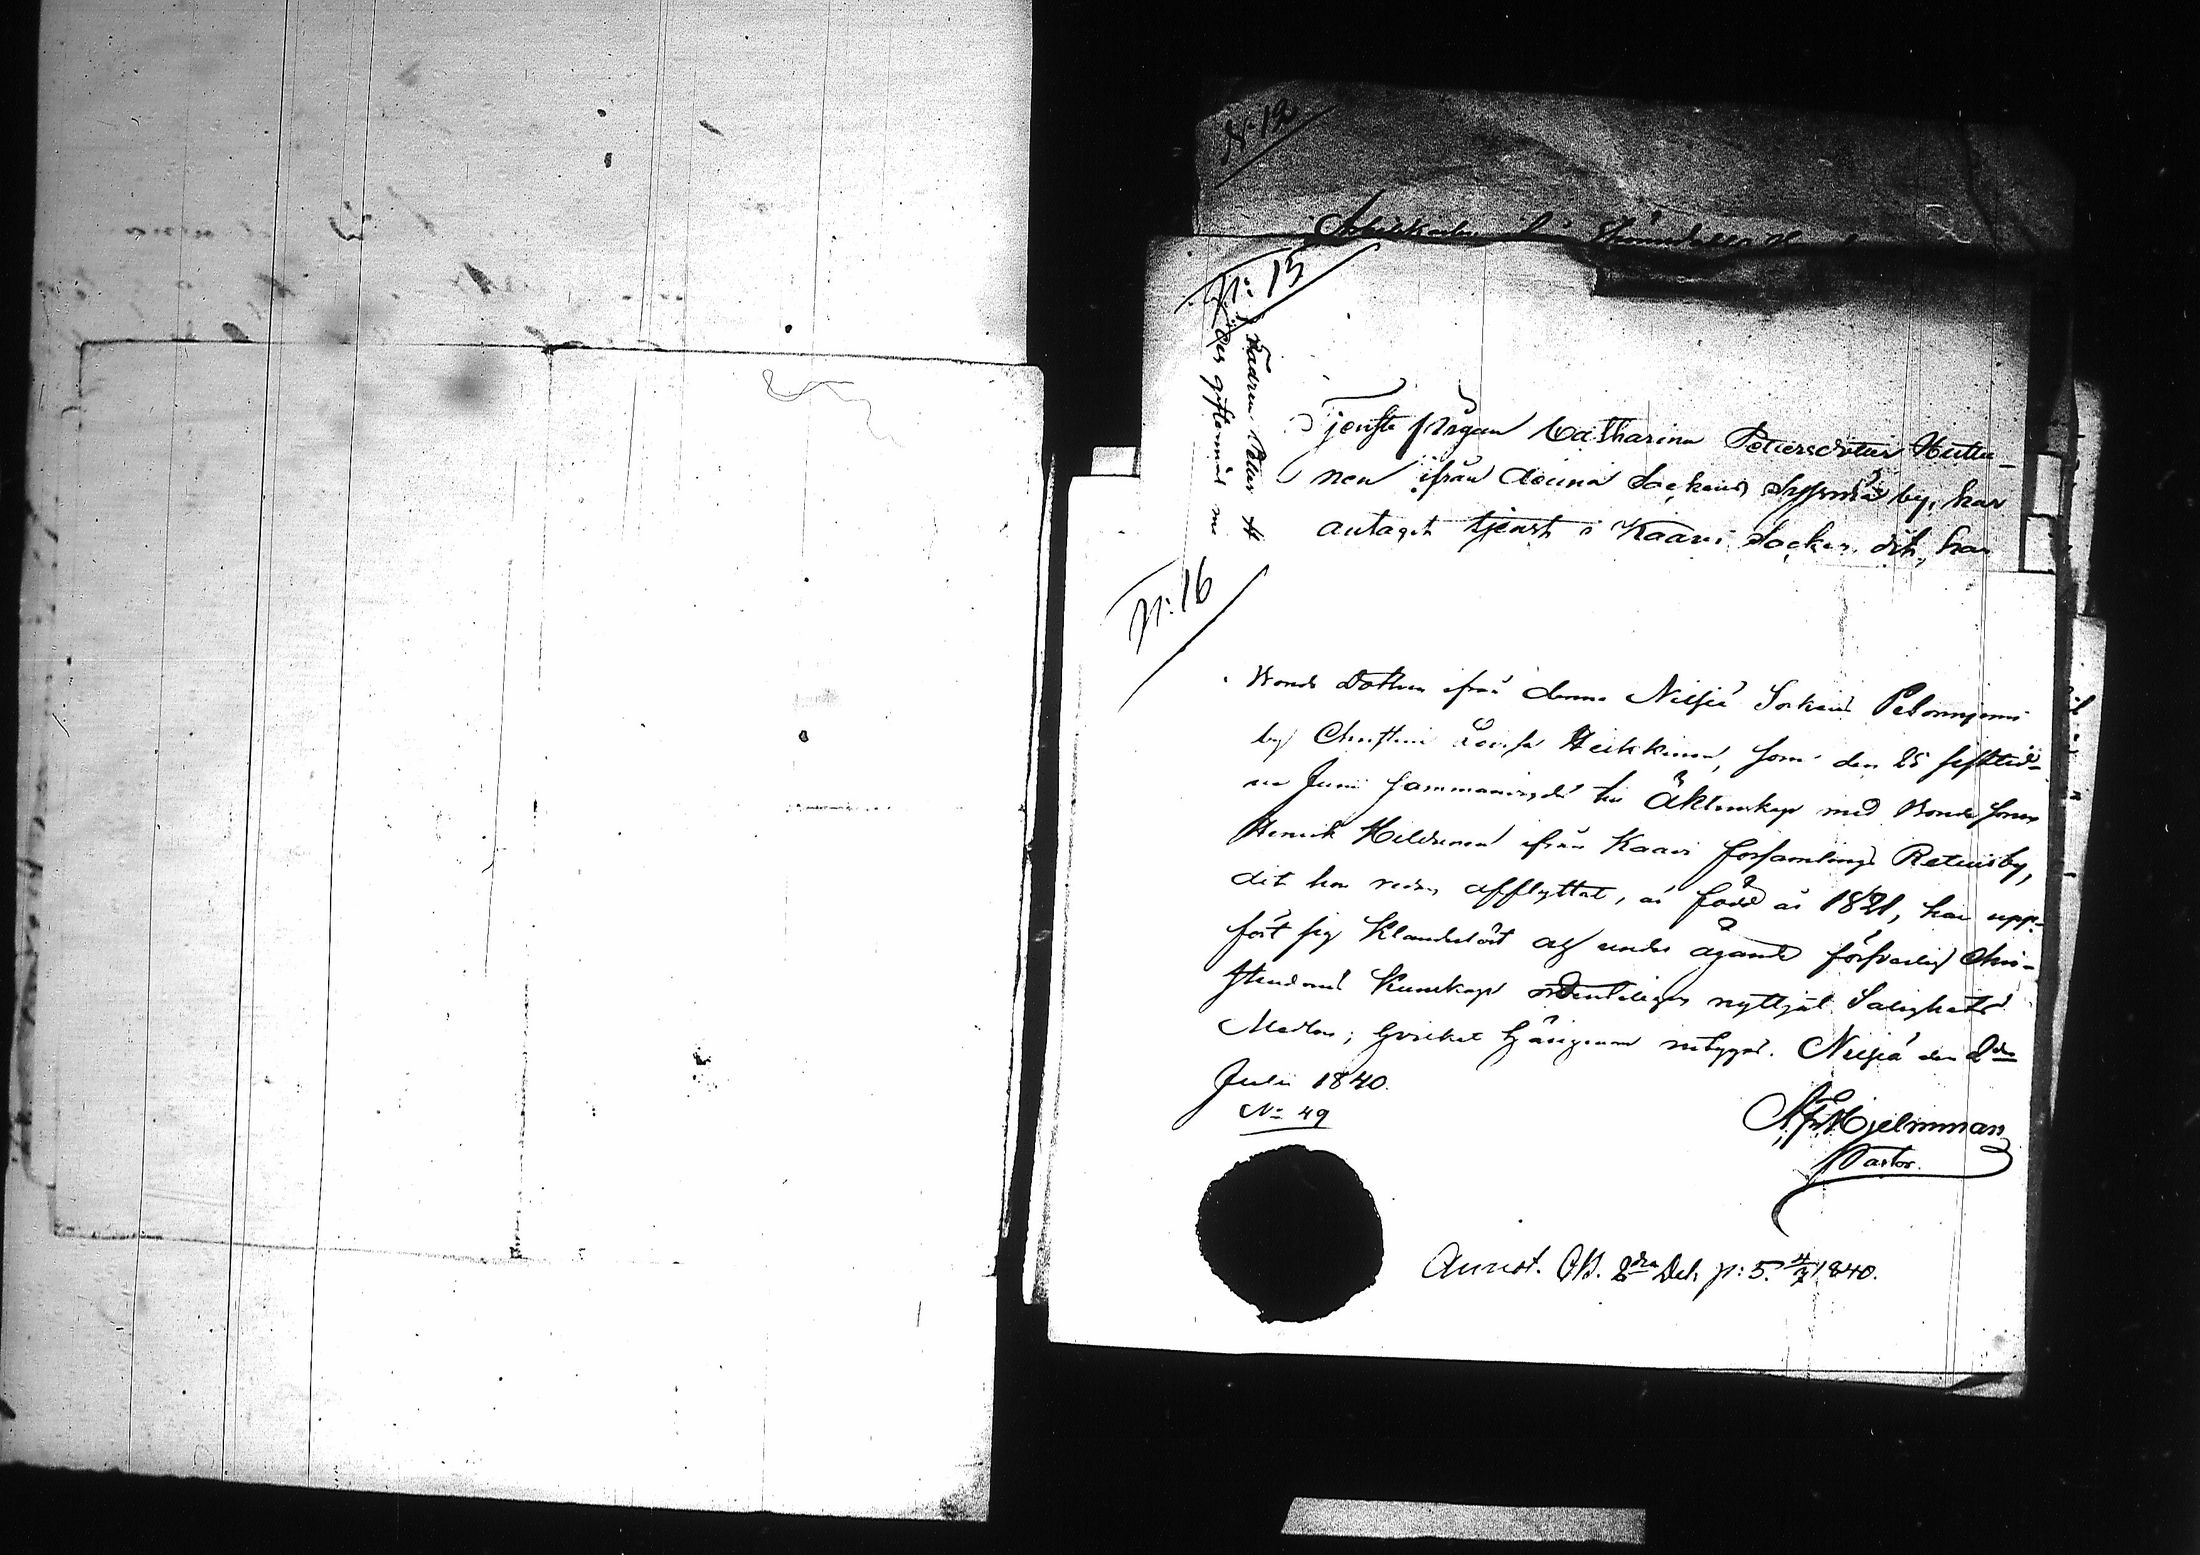 N: 12
N: 13
Fadren Petter H
des giftermål
Tjenste pigan Catharina Pettersdotter Huttu-
nen ifrån denna Sockens Syfvmä by, har
antagit tjenst i Kaavi Socken, dit, har
N: 16
Bonde Dottren ifrån denna Nilsiä Sockens Pelonniemi
by Christina Lovisa Heikkinen, som den 25 sistled-
ne Junii sammanvigdes til Äktenskap med Bondesonen
Henrik Hildunen ifrån Kaavi församlings Retuisby,
dit hon redan afflyttat, är född år 1821, har upp-
fört sig klanderlöst och under ägande försvarlig Chri-
stendoms Kunskap ordenteligen nyttjat Salighets
Medlen; hvilket härigenom intygas. Nilsiä den 2dra
Julii 1840.
No 49
Hjelmman
Pastor.
Annot. CB. 2dra Del. p: 5. 4/7 1840.